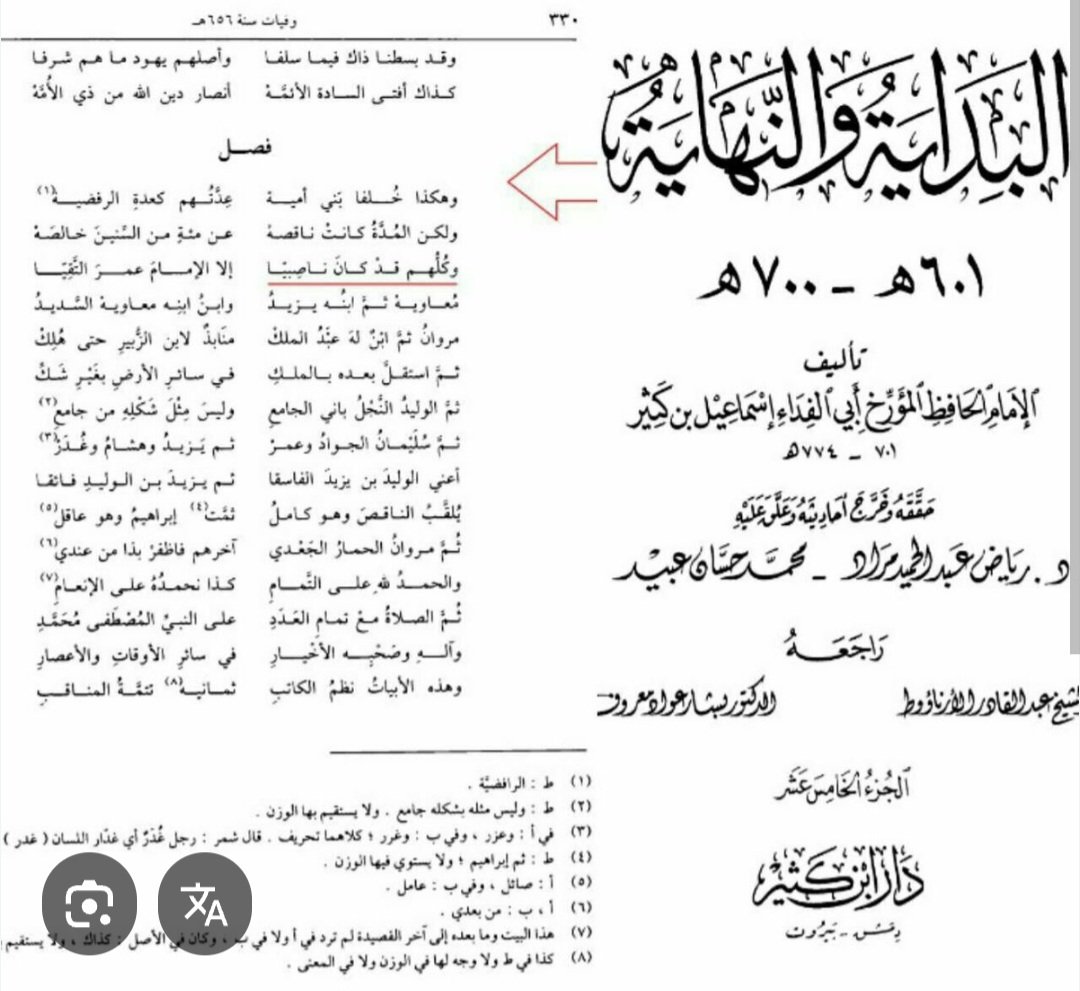 ٣٣٠
وفيات سنة ٦٥٦هـ
وقد بسطنا ذاك فيما سلفا وأصلهم يهود ما هم شرفا
كذاك أفتى السادة الأئمَّهْ أنصار دين الله من ذي الأُمَّهْ
فصل
وهكذا خُلفا بَني أمية عِدَّتُهم كعدةِ الرفضية(١)
ولكن المُدَّةُ كانتْ ناقصهْ عن مئةٍ من السِّنينَ خالصَهْ
وكُلُّهم قدْ كانَ ناصبيّا إلا الإمامَ عمرَ التَّقِيّا
مُعاوية ثمَّ ابنُه يزيدُ وابنُ ابنِه معاوية السَّديدُ
مروانُ ثمَّ ابْنٌ لهَ عبْدُ الملكْ منَابذٌ لابن الزُّبيرِ حتى هُلِكْ
ثمَّ استقلَّ بعده بالملكِ في سائرِ الأرضِ بغَيْرِ شَكِّ
ثمَّ الوليدُ النَّجْلُ باني الجامعِ وليسَ مِثْلَ شَكْلِهِ من جامعِ(٢)
ثمَّ سُلَيْمانُ الجوادُ وعمرْ ثم يَزيدُ وهشامُ وغُدَرْ(٣)
أعني الوليدَ بن يزيدَ الفاسقا ثم يزيدَ بن الوليدِ فائقا
يُلقَّبُ الناقصَ وهو كاملُ ثمَّت(٤) إبراهيمُ وهو عاقلُ(٥)
ثُمَّ مروانُ الحمارُ الجَعْدي آخرهم فاظفرْ بذا من عندي(٦)
والحمدُ للهِ على التَّمامِ كذا نحمدُهُ على الإنعامِ(٧)
ثُمَّ الصلاةُ معْ تمامِ العَدَدِ على النبيِّ المُصْطَفى مُحَمَّدِ
وآلهِ وصَحْبِه الأخْيارِ في سائرِ الأوقاتِ والأعصارِ
وهذه الأبياتُ نظمُ الكاتبِ ثمانية(٨) تتمَّةُ المناقبِ
(١) ط : الرافضيَّة .
(٢) ط : وليس مثله بشكله جامع . ولا يستقيم بها الوزن .
(٣) في أ : وعزر ، وفي ب : وغرر ؛ كلاهما تحريف . قال شمر : رجل غُدَرٌ أي غدّار اللسان ( غدر )
(٤) ط : ثم إبراهيم ؛ ولا يستوي فيها الوزن .
(٥) أ : صائل ، وفي ب : عامل .
(٦) أ ، ب : من بعدي .
(٧) هذا البيت وما بعده إلى آخر القصيدة لم ترد في أ ولا في ب ، وكان في الأصل : كذاك ، ولا يستقيم
(٨) كذا في ط ولا وجه لها في الوزن ولا في المعنى .
البِدَايَةُ وَالنِّهَايَةُ
٦٠١ هـ - ٧٠٠ هـ
تأليف
الإمَام الحَافِظ المُؤَرِّخ أَبي الفِدَاء إسْمَاعيْل بن كَثِيْر
٧٠١ - ٧٧٤ هـ
حَقَّقَهُ وَخَرَّجَ أحَاديثَهُ وَعَلَّقَ عَلَيْهِ
د. رياض عَبد الحميد مراد - محمَّد حسَّان عبيد
رَاجَعَهُ
الشيخ عبد القادر الأرناؤوط الدكتور بشار عواد معروف
الجُزءُ الخَامِسَ عَشَر
دَار ابن كَثيْر
دمشق - بيروت